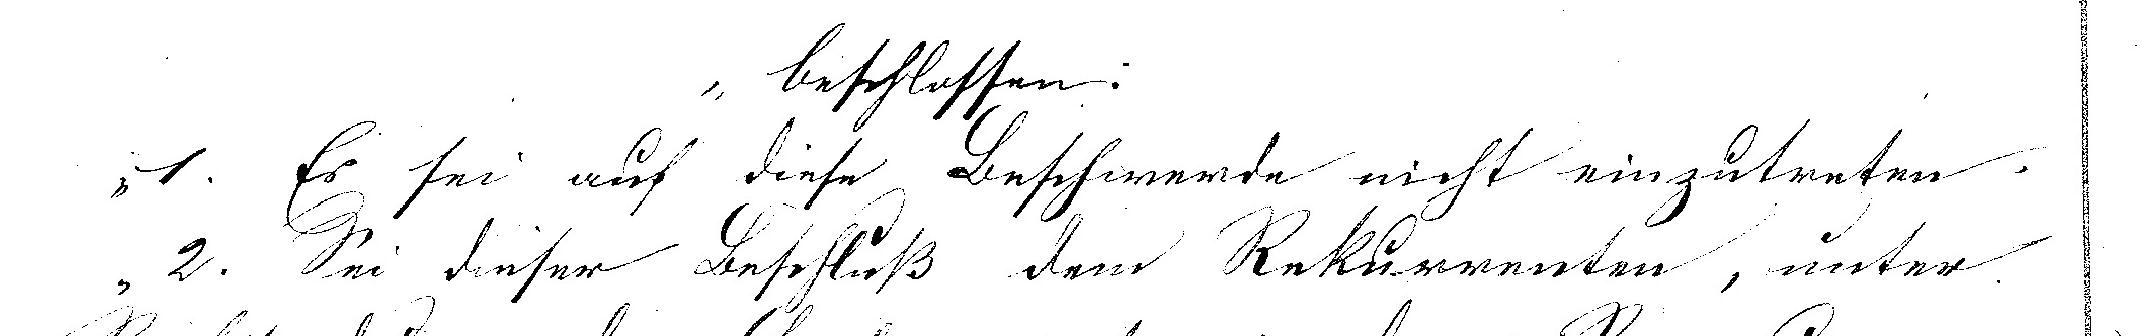 „ beschlossen:
„1. Es sei auf diese Beschwerde nicht einzutreten.
„2. Sei dieser Beschluß dem Rekurrenten, unter